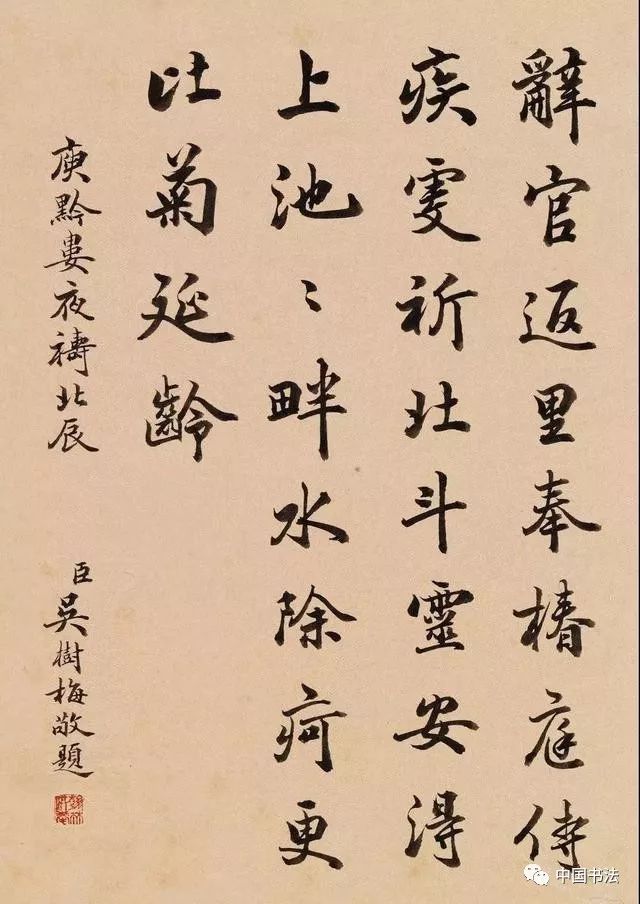 辭官返里奉椿庭侍
疾虔祈北斗靈安得
上池〻畔水除疴更
比菊延齡
庾黔婁夜禱北辰
臣吳樹梅敬題
中国书法